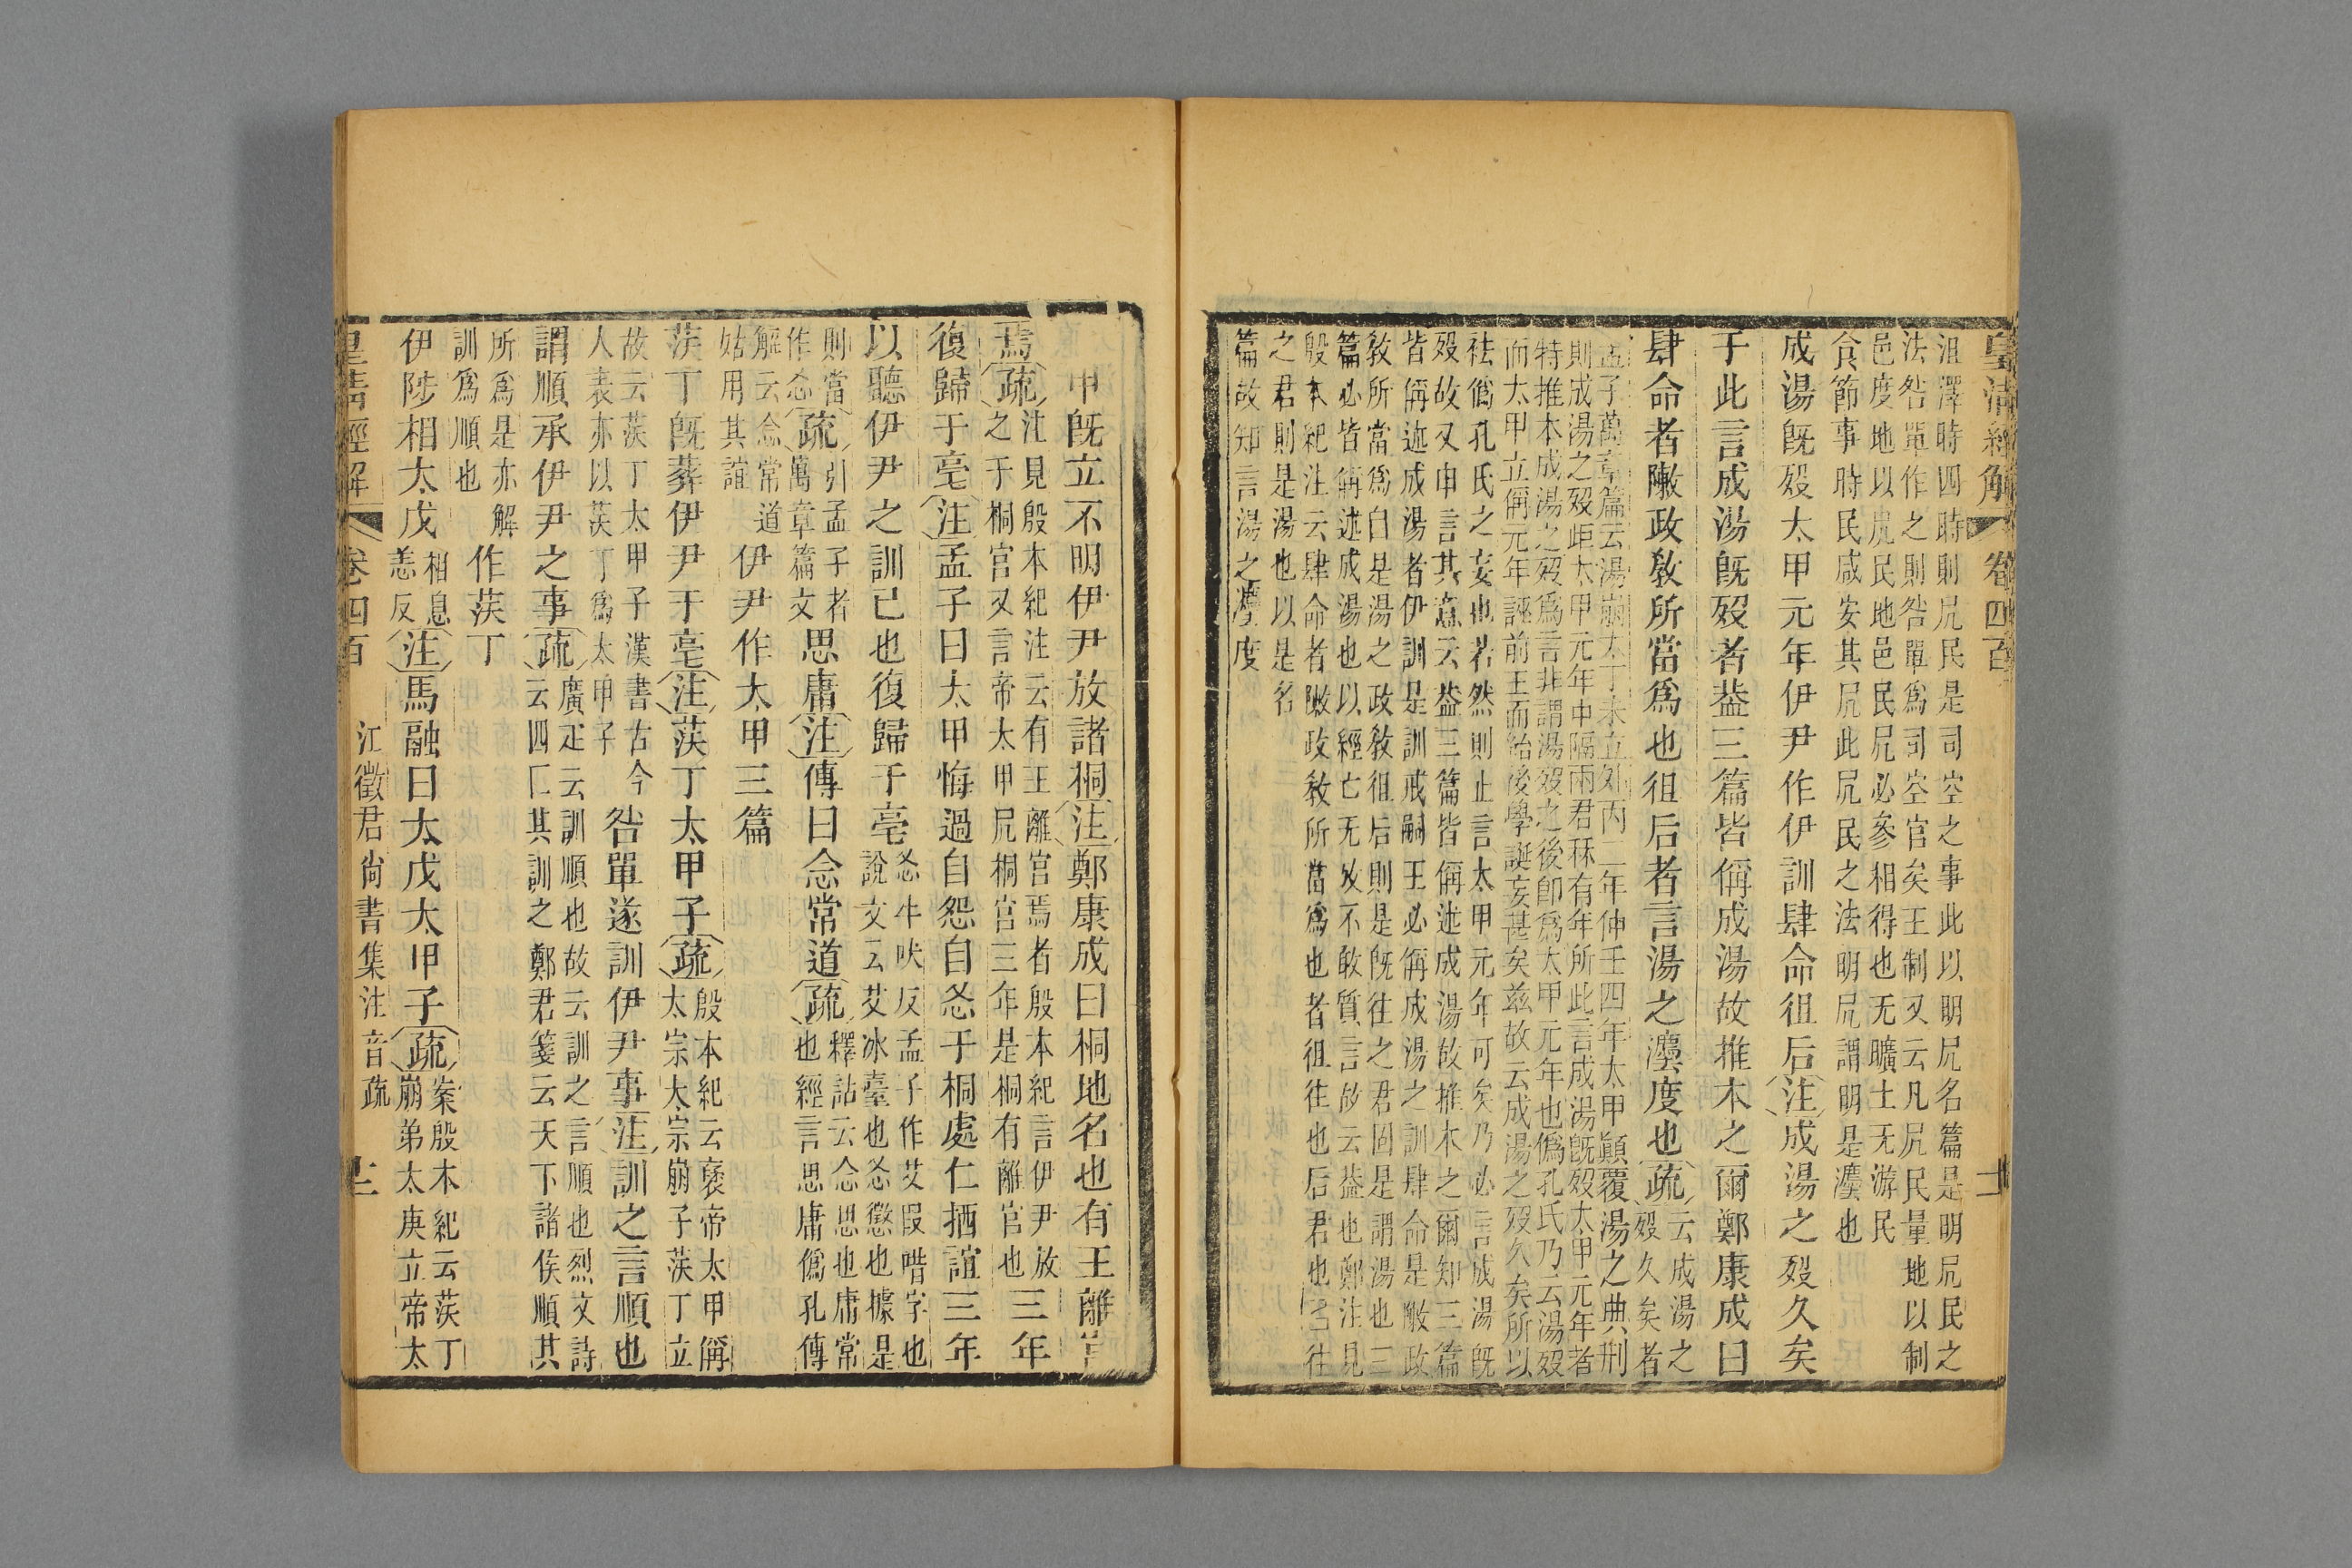 皇清經解　卷四百　十一
沮澤時四時則凥民是司空之事此以明凥名篇是明凥民之
法咎單作之則咎單爲司空官矣王制又云凡凥民量地以制
邑度地以凥民地邑民凥必參相得也无曠土无游民
食節事時民咸安其凥此凥民之法明凥謂明是灋也
成湯旣歿太甲元年伊尹作伊訓肆命徂后注成湯之歿久矣
于此言成湯旣歿者葢三篇皆偁成湯故推本之爾鄭康成曰
肆命者敶政敎所當爲也徂后者言湯之灋度也疏云成湯之
歿久矣者
孟子萬章篇云湯崩太丁未立外丙二年仲壬四年太甲顚覆湯之典刑
則成湯之歿歫太甲元年中隔兩君秝有年所此言成湯旣歿太甲元年者
特推本成湯之歿爲言非謂湯歿之後卽爲太甲元年也僞孔氏乃云湯歿
而太甲立偁元年誣前王而紿後學誕妄甚矣兹故云成湯之歿久矣所以
袪僞孔氏之妄也若然則止言太甲元年可矣乃必言成湯旣
歿故又申言其意云葢三篇皆偁述成湯故推本之爾知三篇
皆偁述成湯者伊訓是訓戒嗣王必偁成湯之訓肆命是敶政
敎所當爲自是湯之政敎徂后則是旣往之君固是謂湯也三
篇必皆偁述成湯也以經亡无攷不敢質言故云葢也鄭注見
殷本紀注云肆命者敶政敎所當爲也者徂往也后君也已往
之君則是湯也以是名
篇故知言湯之灋度
甲旣立不明伊尹放諸桐注鄭康成曰桐地名也有王離宮
焉疏注見殷本紀注云有王離宮焉者殷本紀言伊尹放
之于桐宮又言帝太甲凥桐宮三年是桐有離宮也
三年
復歸于亳注孟子曰太甲悔過自怨自㣻于桐處仁䢛誼三年
以聽伊尹之訓己也復歸于亳㣻牛吠反孟子作艾叚喈字也
說文云艾冰臺也㣻懲也據是
則當
作㣻疏引孟子者
萬章篇文思庸注傳曰念常道疏釋詁云念思也庸常
也經言思庸僞孔傳
解云念常道
姑用其誼伊尹作太甲三篇
茨丁旣葬伊尹于亳注茨丁太甲子疏殷本紀云褒帝太甲偁
太宗太宗崩子茨丁立
故云茨丁太甲子漢書古今
人表亦以茨丁爲太甲子咎單遂訓伊尹事注訓之言順也
謂順承伊尹之事疏廣疋云訓順也故云訓之言順也烈文詩
云四匚其訓之鄭君箋云天下諸侯順其
所爲是亦解
訓爲順也作茨丁
伊陟相太戊相息
恙反注馬融曰太戊太甲子疏案殷本紀云茨丁
崩弟太庚立帝太
皇清經解　卷四百　江徵君尙書集注音疏　十二